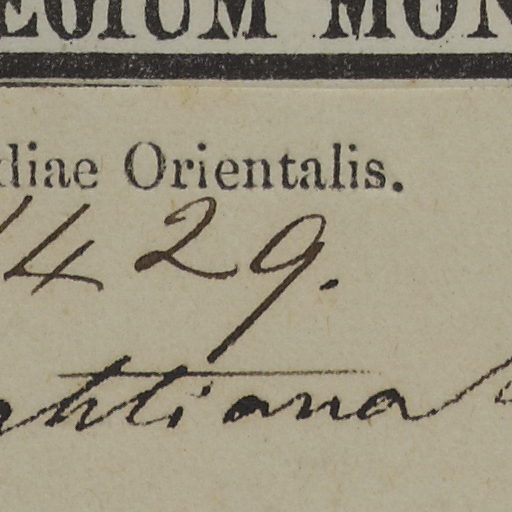 EGIUM MON
diae Orientalis.
429.
ghtiana